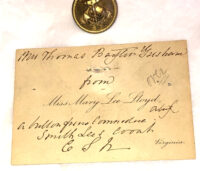 Mrs Thomas Baxter Gresham
from
Miss Mary Lee Lloyd
a button from Commodore
Smith Lee's Coat
C S N
Virginia.